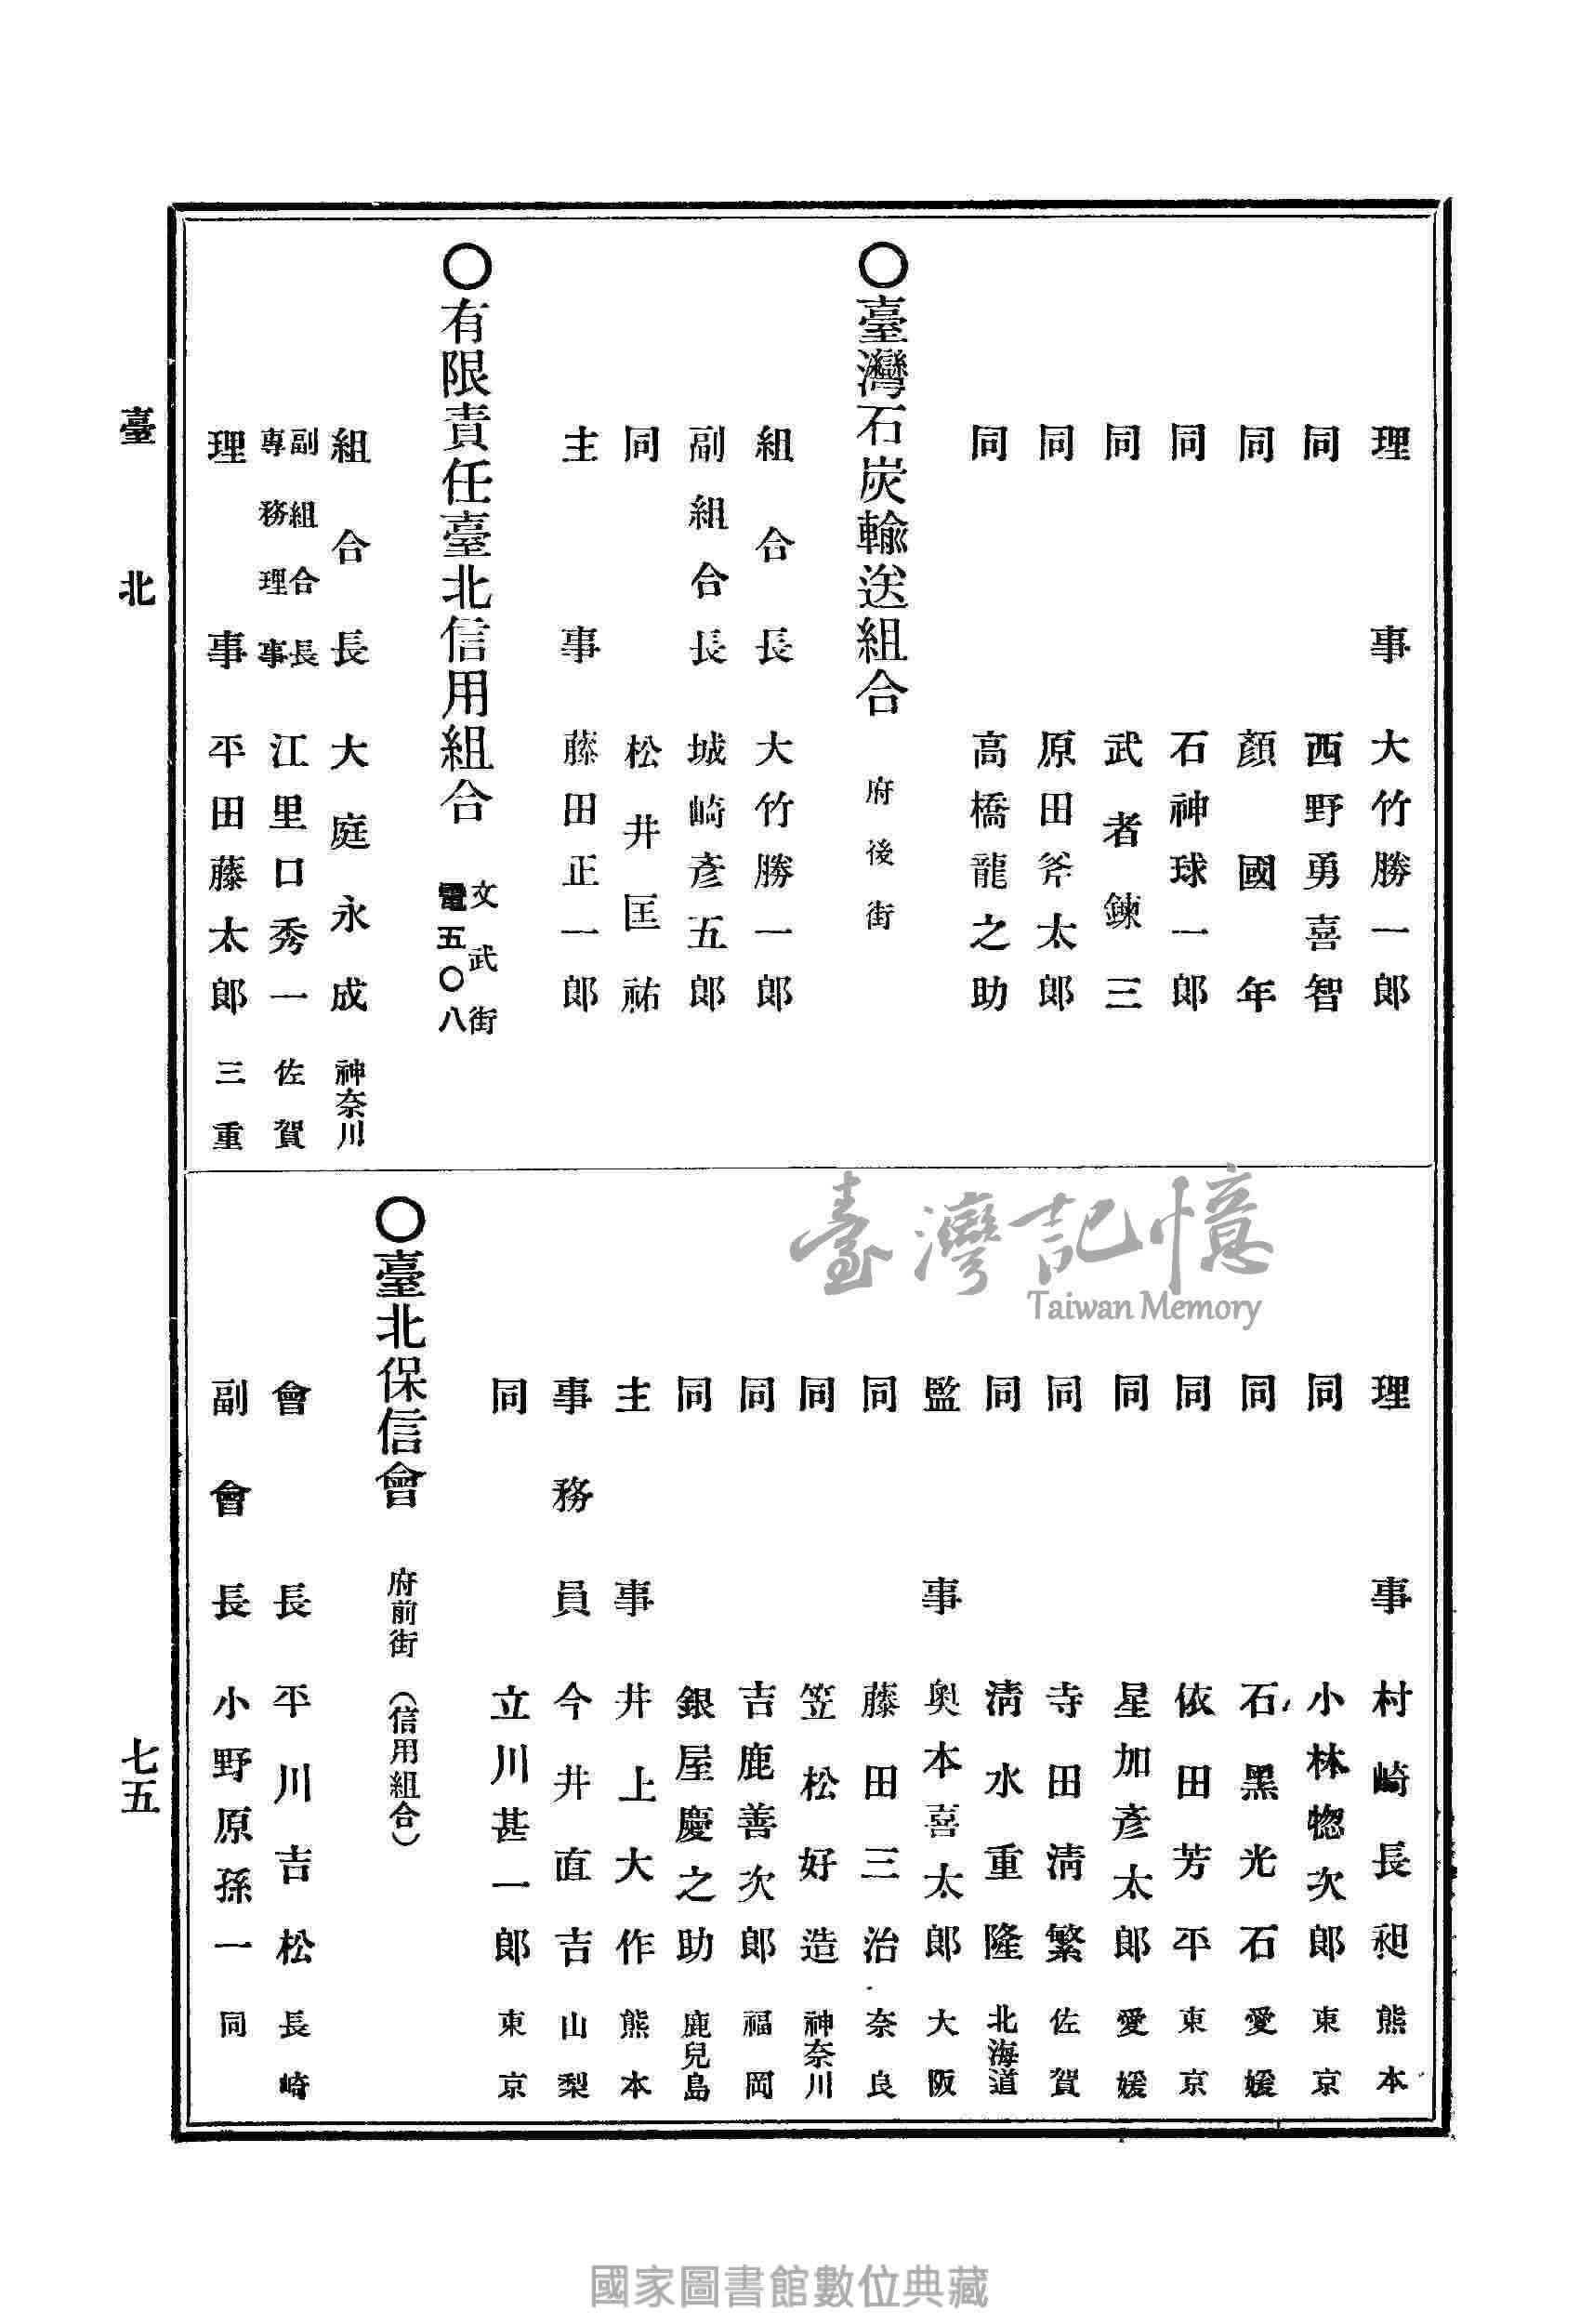 理事 大竹勝一郎
同 西野勇喜智
同 顏國年
同 石神球一郎
同 武者鍊三
同 原田斧太郎
同 高橋龍之助
〇臺灣石炭輸送組合 府後街
組合長 大竹勝一郎
副組合長 城崎彥五郎
同 松井匡祐
主事 藤田正一郎
〇有限責任臺北信用組合 文武街 電五〇八
組合長 大庭永成 神奈川
副組合長 專務理事 江里口秀一 佐賀
理事 平田藤太郎 三重
理事 村崎長昶 熊本
同 小林惣次郎 東京
同 石黑光石 愛媛
同 依田芳平 東京
同 星加彥太郎 愛媛
同 寺田淸繁 佐賀
同 淸水重隆 北海道
監事 奧本喜太郎 大阪
同 藤田三治 奈良
同 笠松好造 神奈川
同 吉鹿善次郎 福岡
同 銀屋慶之助 鹿兒島
主事 井上大作 熊本
事務員 今井直吉 山梨
同 立川甚一郎 東京
〇臺北保信會 府前街（信用組合）
會長 平川吉松 長崎
副會長 小野原孫一 同
臺北
七五
臺灣記憶
Taiwan Memory
國家圖書館數位典藏